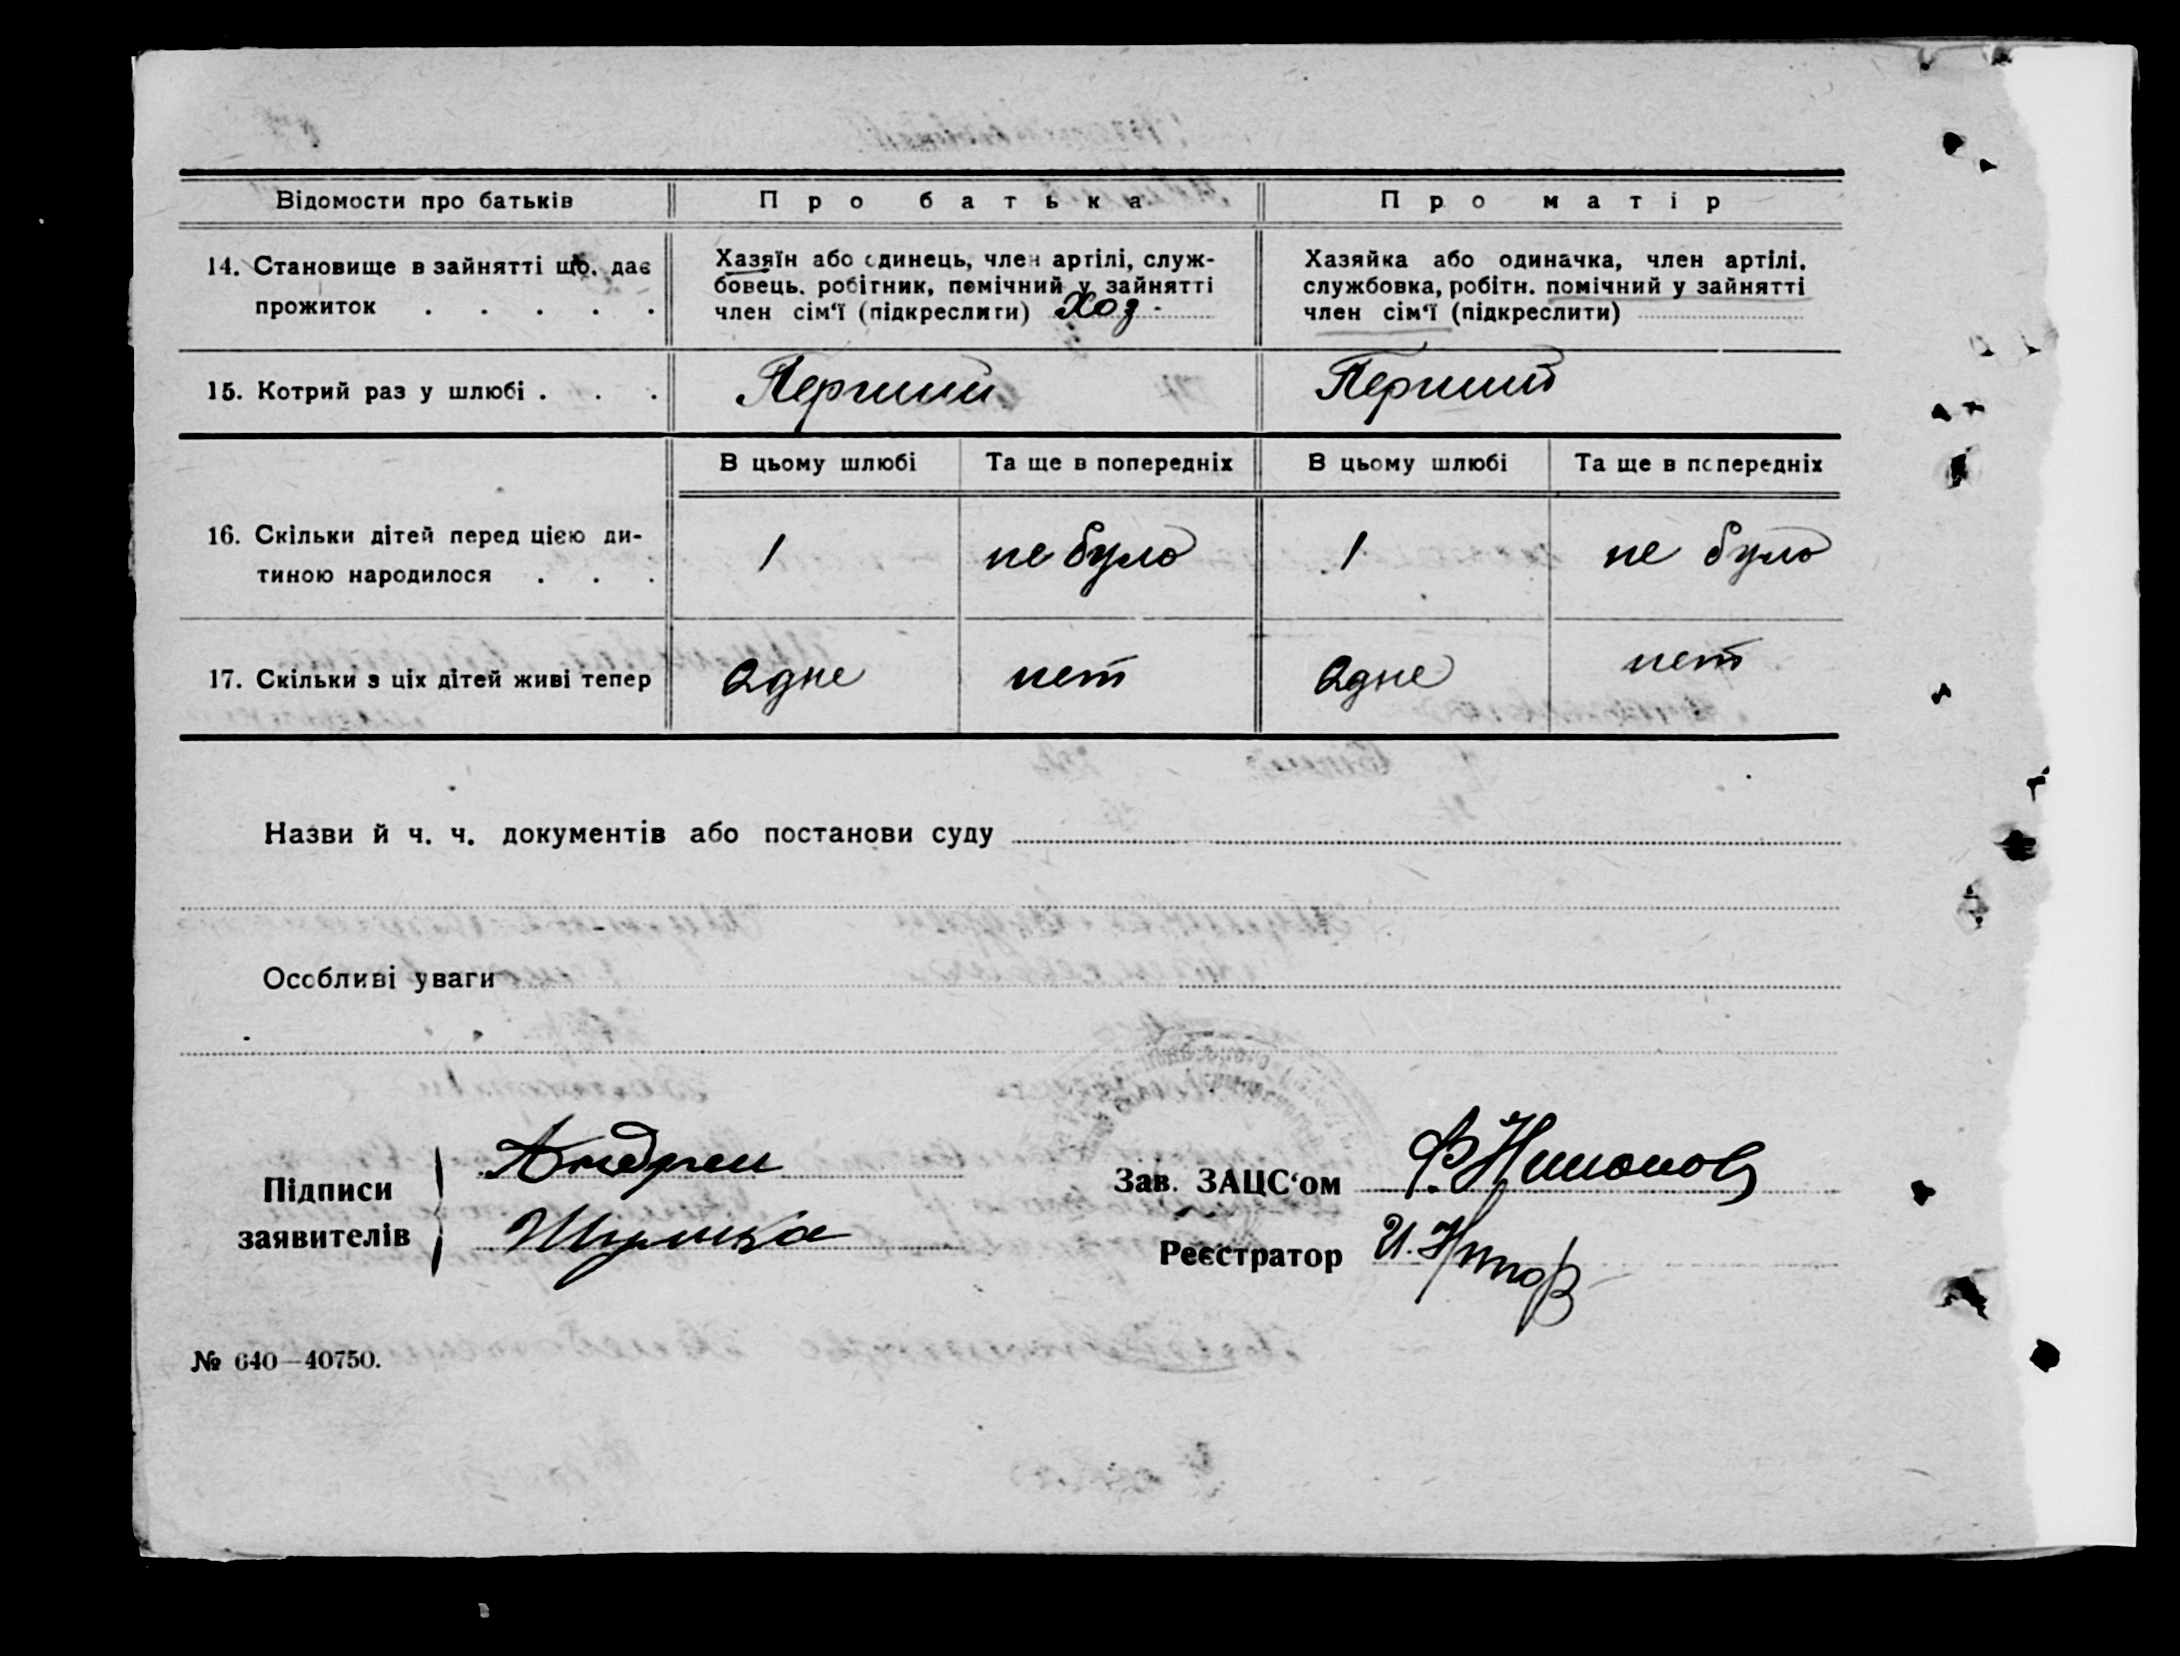 Відомости про батьків Про батька Про матір
14. Становище в зайнятті що дає
прожиток . . . . .
Хазяїн або одинець, член артілі, служ-
бовець, робітник, помічний у зайнятті
член сім'ї (підкреслити) Хоз.
Хазяйка або одиначка, член артілі,
службовка, робітн. помічний у зайнятті
член сім'ї (підкреслити)
15. Котрий раз у шлюбі . . . Перший Перший
В цьому шлюбі Та ще в попередніх В цьому шлюбі Та ще в попередніх
16. Скільки дітей перед цією ди-
тиною народилося . . .
1 не було 1 не було
17. Скільки з ціх дітей живі тепер Одне нет Одне нет
Назви й ч. ч. документів або постанови суду
Особливі уваги
Підписи
заявителів
Андреи
Шулика
Зав. ЗАЦС'ом
Реєстратор
№ 640—40750.